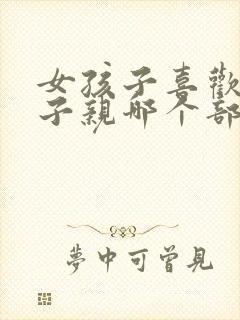 女孩子喜歡
子親哪个部
夢中可曾見